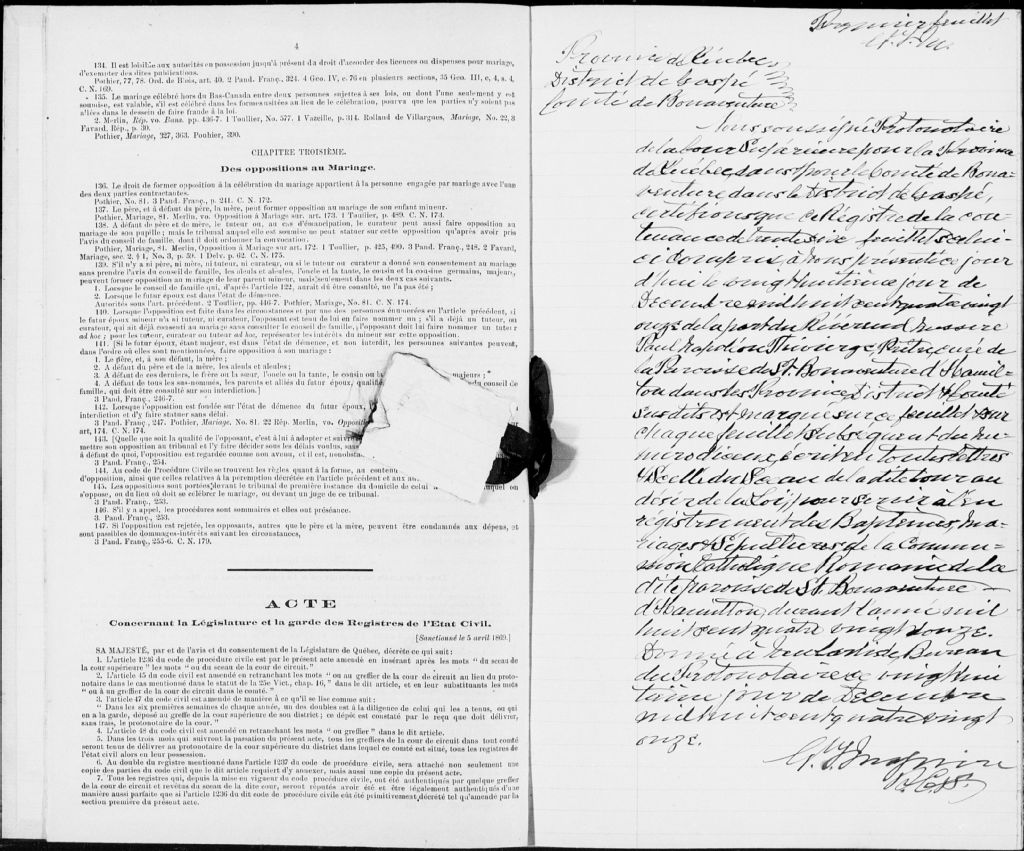 4
134. Il est loisible aux autorités en possession jusqu'à présent du droit d'accorder des licences ou dispenses pour mariage,
d'exempter des dites publications.
Pothier, 77, 78. Ord. de Blois, art. 40. 2 Pand. Franç., 324. 4 Geo. IV, c. 76 en plusieurs sections, 35 Geo. III, c. 4, s. 4,
C. N. 169.
135. Le mariage célébré hors du Bas-Canada entre deux personnes sujettes à ses lois, ou dont l'une seulement y est
soumise, est valable, s'il est célébré dans les formes usitées au lieu de la célébration, pourvu que les parties n'y soient pas
allées dans le dessein de faire fraude à la loi.
2. Merlin, Rép. vo. Bans. pp. 436-7. 1 Toullier, No. 577. 1 Vazeille, p. 314. Rolland de Villargues, Mariage, No. 22, 8
Favard, Rép., p. 30.
Pothier, Mariage, 327, 363. Pouhier, 390.
CHAPITRE TROISIÈME.
Des oppositions au Mariage.
136. Le droit de former opposition à la célébration du mariage appartient à la personne engagée par mariage avec l'une
des deux parties contractantes.
Pothier, No. 81. 3 Pand. Franç., p. 241. C. N. 172.
137. Le père, et à défaut du père, la mère, peut former opposition au mariage de son enfant mineur.
Pothier, Mariage, 81. Merlin, vo. Opposition à Mariage sur. art. 173. 1 Toullier, p. 489. C. N. 173.
138. A défaut de père et de mère, le tuteur ou, au cas d'émancipation, le curateur peut aussi faire opposition au
mariage de son pupille; mais le tribunal auquel elle est soumise ne peut statuer sur cette opposition qu'après avoir pris
l'avis du conseil de famille, dont il doit ordonner la convocation.
Pothier, Mariage, 81. Merlin, Opposition à Mariage sur art. 172. 1 Toullier, p. 425, 490. 3 Pand. Franç., 248. 2 Favard,
Mariage, sec. 2. § 1, No. 3, p. 59. 1 Delv. p. 62. C. N. 175.
139. S'il n'y a ni père, ni mère, ni tuteur, ni curateur, ou si le tuteur ou curateur a donné son consentement au mariage
sans prendre l'avis du conseil de famille, les aïeuls et aïeules, l'oncle et la tante, le cousin et la cousine germains, majeurs,
peuvent former opposition au mariage de leur parent mineur, mais seulement dans les deux cas suivants.
1. Lorsque le conseil de famille qui, d'après l'article 122, aurait dû être consulté, ne l'a pas été;
2. Lorsque le futur époux est dans l'état de démence.
Autorités sous l'art. précédent. 2 Toullier, pp. 446-7. Pothier, Mariage, No. 81. C. N. 174.
140. Lorsque l'opposition est faite dans les circonstances et par une des personnes énumérées en l'article précédent, si
le futur époux mineur n'a ni tuteur, ni curateur, l'opposant est tenu de lui en faire nommer un; s'il a déjà un tuteur, ou
curateur, qui ait déjà consenti au mariage sans consulter le conseil de famille, l'opposant doit lui faire nommer un tuteur
ad hoc; pour les tuteur, curateur ou tuteur ad hoc, représenter les intérêts du mineur sur cette opposition.
141. [Si le futur époux, étant majeur, est dans l'état de démence, et non interdit, les personnes suivantes peuvent,
dans l'ordre où elles sont mentionnées, faire opposition à son mariage:
1. Le père, et, à son défaut, la mère;
2. A défaut du père et de la mère, les aïeuls et aïeules;
3. A défaut de ces derniers, le frère ou la sœur, l'oncle ou la tante, le cousin ou la majeurs;
4. A défaut de tous les sus-nommés, les parents et alliés du futur époux, qualifi du conseil de
famille, qui doit être consulté sur son interdiction.]
3 Pand. Franç., 246-7.
142. Lorsque l'opposition est fondée sur l'état de démence du futur époux,
interdiction et d'y faire statuer sans délai.
3 Pand. Franç., 247. Pothier, Mariage, No. 81. 22 Rép. Merlin, vo. Oppositio
art, 174. C. N. 174.
143. [Quelle que soit la qualité de l'opposant, c'est à lui à adopter et suivre
mettre son opposition au tribunal et l'y faire décider sous les délais voulus, sans
à défaut de quoi, l'opposition est regardée comme non avenu, et il est, nonobsta
3 Pand. Franç., 254.
144. Au code de Procédure Civile se trouvent les règles quant à la forme, au conten
d'opposition, ainsi que celles relatives à la péremption décrétée en l'article précédent et aux au
145. Les oppositions sont portées devant le tribunal de première instance du domicile de celui auquel on
s'oppose, ou du lieu où doit se célébrer le mariage, ou devant un juge de ce tribunal.
3. Pand. Franç., 253.
146. S'il y a appel, les procédures sont sommaires et elles ont préséance.
3. Pand. Franç., 253.
147. Si l'opposition est rejetée, les opposants, autres que le père et la mère, peuvent être condamnés aux dépens, et
sont passibles de dommages-intérêts suivant les circonstances,
3 Pand. Franç., 255-6. C. N. 179.
ACTE
Concernant la Législature et la garde des Registres de l'Etat Civil.
[Sanctionné le 5 avril 1869.]
SA MAJESTÉ, par et de l'avis et du consentement de la Législature de Québec, décrète ce qui suit:
1. L'article 1236 du code de procédure civile est par le présent acte amendé en insérant après les mots "du sceau de
la cour supérieure" les mots "ou du sceau de la cour de circuit."
2. L'article 45 du code civil est amendé en retranchant les mots "ou au greffier de la cour de circuit au lieu du proto-
notaire dans le cas mentionné dans le statut de la 25e Vict., chap. 16," dans le dit article, et en leur substituant les mots
"ou à un greffier de la cour de circuit dans le comté."
3. l'article 47 du code civil est amendé de manière à ce qu'il se lise comme suit:
"Dans les six premières semaines de chaque année, un des doubles est à la diligence de celui qui les a tenus, ou qui
en a la garde, déposé au greffe de la cour supérieure de son district; ce dépôt est constaté par le reçu que doit délivrer,
sans frais, le protonotaire de la cour."
4. L'article 48 du code civil est amendé en retranchant les mots "ou greffier" dans le dit article.
5. Dans les trois mois qui suivront la passation du présent acte, tous les greffiers de la cour de circuit dans tout comté
seront tenus de délivrer au protonotaire de la cour supérieure du district dans lequel ce comté est situé, tous les registres de
l'état civil alors en leur possession.
6. Au double du registre mentionné dans l'article 1237 du code de procédure civile, sera attaché non seulement une
copie des parties du code civil que le dit article requiert d'y annexer, mais aussi une copie du présent acte.
7. Tous les registres qui, depuis la mise en vigueur du code de procédure civile, ont été authentiqués par quelque greffier
de la cour de circuit et revêtus du sceau de la dite cour, seront réputés avoir été et être légalement authentiqués d'une
manière aussi parfaite que si l'article 1236 du dit code de procédure civile eût été primitivement décrété tel qu'amendé par la
section première du présent acte.
Premier feuillet
Province de Québec
District de Gaspé
Comté de Bonaventure
Nous soussigné Protonotaire
de la Cour Supérieure pour la Province
de Québec, dans et pour le Comté de Bona-
venture dans le District de Gaspé,
certifions que ce Régistre de la con-
tenance de trente six feuillets celui-
ci compris, à nous présenté ce jour
d'hui le vingt huitième jour de
Décembre mil huit cent quatre vingt
onze de la part du Révérend Messire
Paul Napoléon Thivierge Prêtre curé de
la Paroisse de St Bonaventure d'Hamil-
ton dans les Province, District & Comté
susdits est marqué sur ce feuillet & sur
chaque feuillet subséquent du nu-
méro d'iceux, écrit en toutes lettres
& Scellé du Sceau de la dite Cour au
désir de la Loi, pour servir à l'En
régistrement des Baptêmes, Ma-
riages & Sépultures de la Commu-
nion Catholique Romaine de la
dite paroisse de St. Bonaventure
d'Hamilton, durant l'année mil
huit cent quatre vingt douze.
Donné à New Carlisle, Bureau
du Protonotaire ce vingt hui
tième jour de Décembre
mil huit cent quatre vingt
onze.